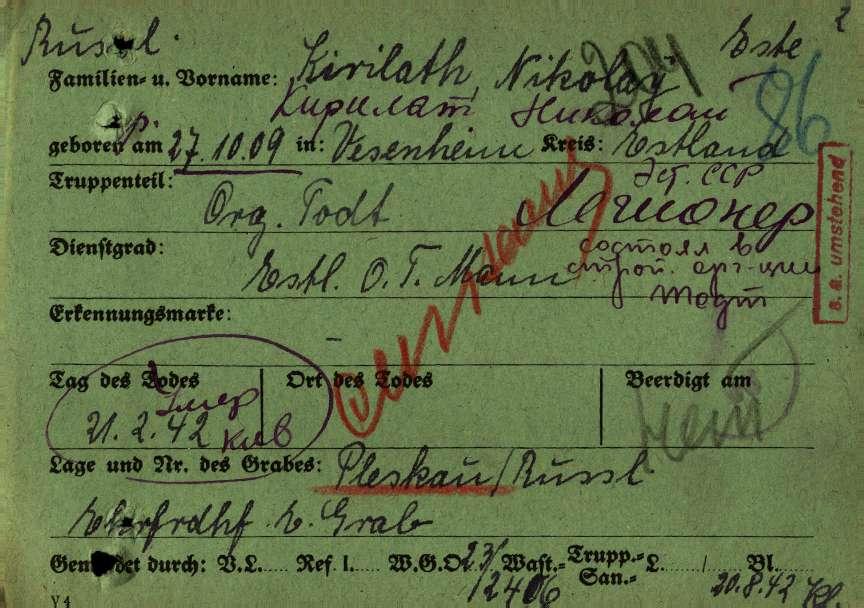 Russl. Este 2
Familien- u. Vorname: Kirilath, Nikolay 204
Кирилат Николай 86
geboren am 27.10.09 in: Vesenheim Kreis: Estland
р. Эст. ССР
Truppenteil: Org. Todt Легионер
Dienstgrad: Estl. O. T. Mann
состоял в
строй. орг-ции
Тодт
s. a. umstehend
Erkennungsmarke: –
Tag des Todes Ort des Todes Beerdigt am
Умер
21. 2. 42 нет
Lage und Nr. des Grabes: Pleskau/Russl
Ehrfrdhf E. Grab
Gemeldet durch: V.L. Ref I. W.G.O. 23/2406 Wast.- Trupp.- San.- L. / Bl.
20.8.42
V 4